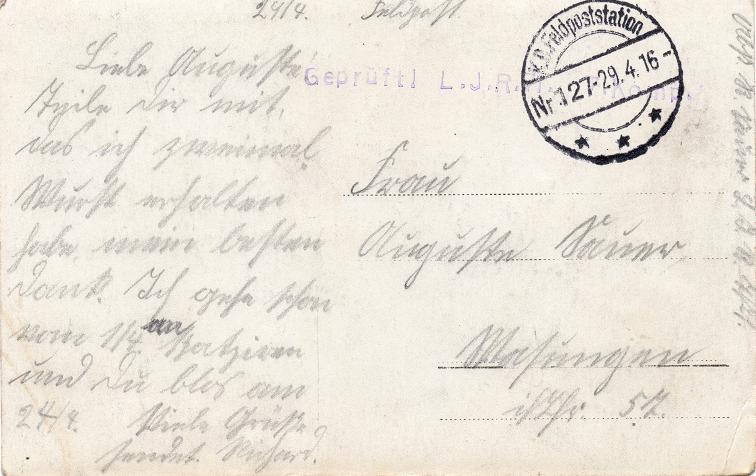 24/4. Feldpost.
Liebe Auguste!
Theile dir mit,
das ich zweimal
Wurst erhalten
habe, mein besten
Dank. Ich gehe schon
vom 1/4 an
und Du blos am
24/4. Viele Grüße
sendet Richard.
Geprüft! L.J.R.
K.D. Feldpoststation
Nr. 127 - 29.4.16 -
Frau
Auguste Sauer
Wasungen
i/Thr. 57.